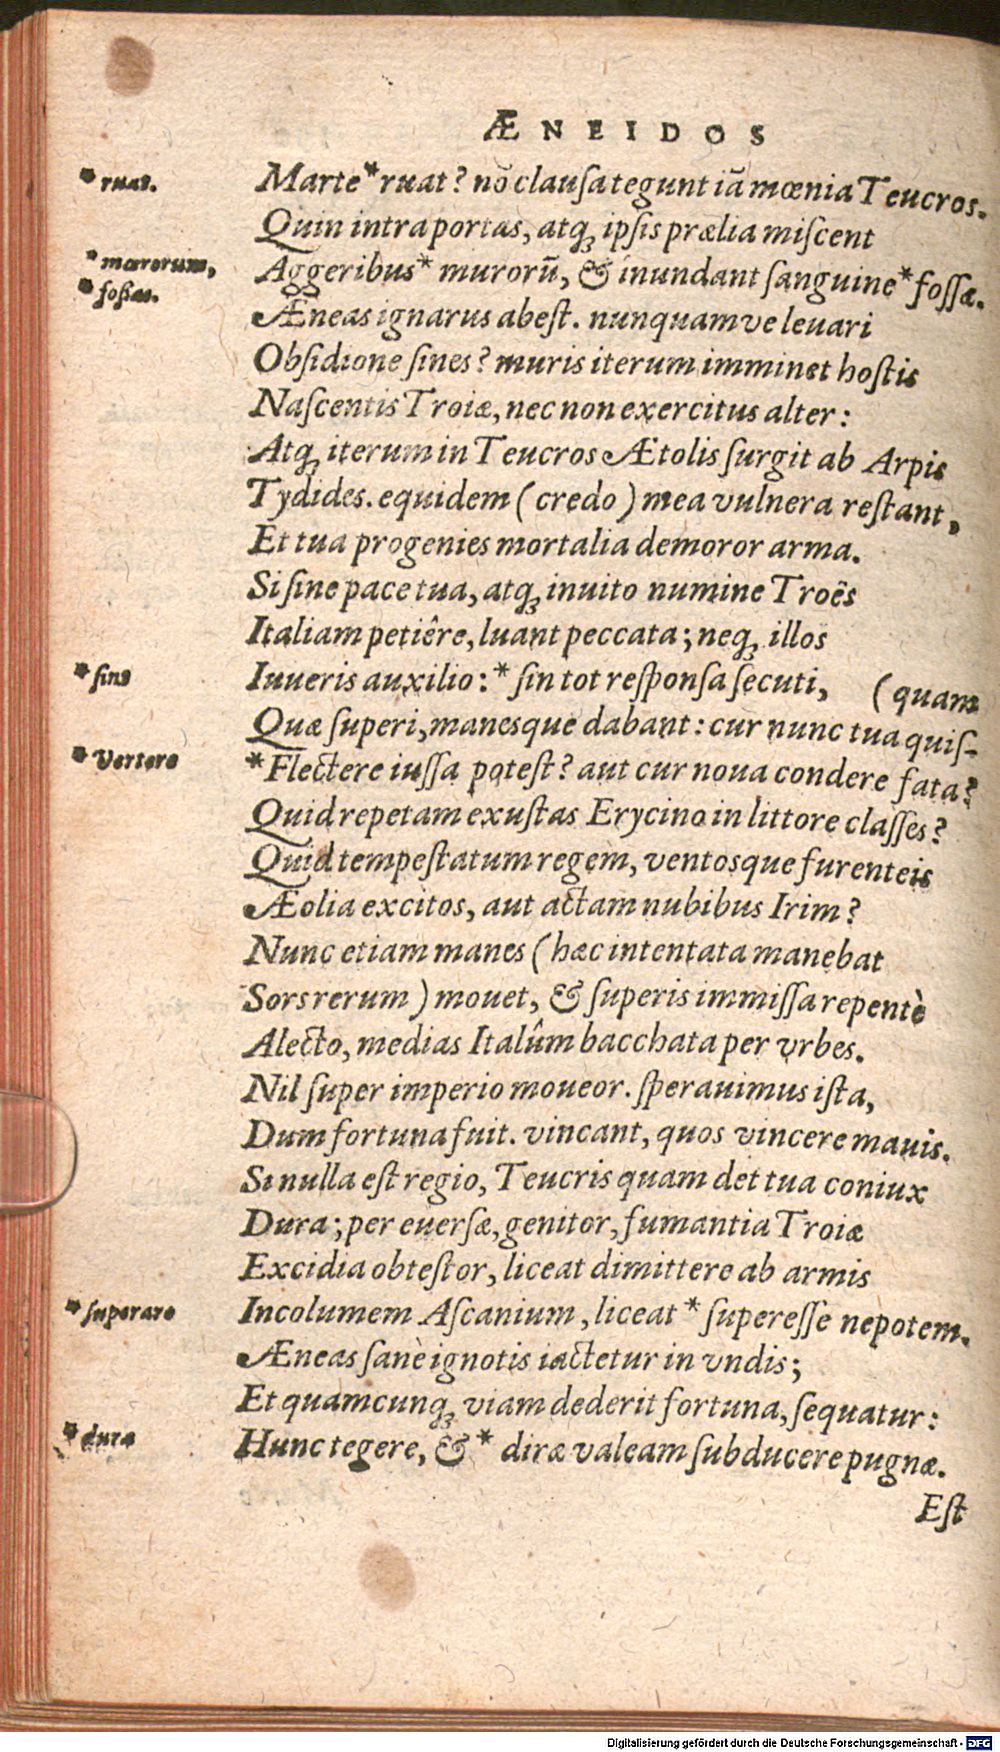 ÆNEIDOS
*ruat.
Marte *ruat? nō clauſa tegunt iā mœnia Teucros.
Quin intra portas, atq; ipſis prælia miſcent
*mœrorum,
Aggeribus* murorū, & inundant ſanguine *foſſæ.
*foßas.
Æneas ignarus abeſt. nunquamve leuari
Obſidione ſines? muris iterum imminet hoſtis
Naſcentis Troiæ, nec non exercitus alter:
Atq; iterum in Teucros Ætolis ſurgit ab Arpis
Tydides. equidem (credo) mea vulnera reſtant,
Et tua progenies mortalia demoror arma.
Si ſine pace tua, atq; inuito numine Troës
Italiam petiêre, luant peccata; neq; illos
*ſins
Iuueris auxilio: *ſin tot reſponſa ſecuti,
(quam
Quæ ſuperi, manesque dabant: cur nunc tua quiſ-
*Vertere
*Flectere iuſſa poteſt? aut cur noua condere fata?
Quid repetam exuſtas Erycino in littore claſſes?
Quid tempeſtatum regem, ventosque furenteis
Æolia excitos, aut actam nubibus Irim?
Nunc etiam manes (hæc intentata manebat
Sors rerum) mouet, & ſuperis immiſſa repentè
Alecto, medias Italûm bacchata per vrbes.
Nil ſuper imperio moueor. ſperauimus iſta,
Dum fortuna fuit. vincant, quos vincere mauis.
Si nulla eſt regio, Teucris quam det tua coniux
Dura; per euerſæ, genitor, fumantia Troiæ
Excidia obteſtor, liceat dimittere ab armis
*ſuperare
Incolumem Aſcanium, liceat *ſupereſſe nepotem.
Æneas ſanè ignotis iactetur in vndis;
Et quamcunq; viam dederit fortuna, ſequatur:
*duræ
Hunc tegere, & * diræ valeam ſubducere pugnæ.
Eſt
Digitalisierung gefördert durch die Deutsche Forschungsgemeinschaft - DFG